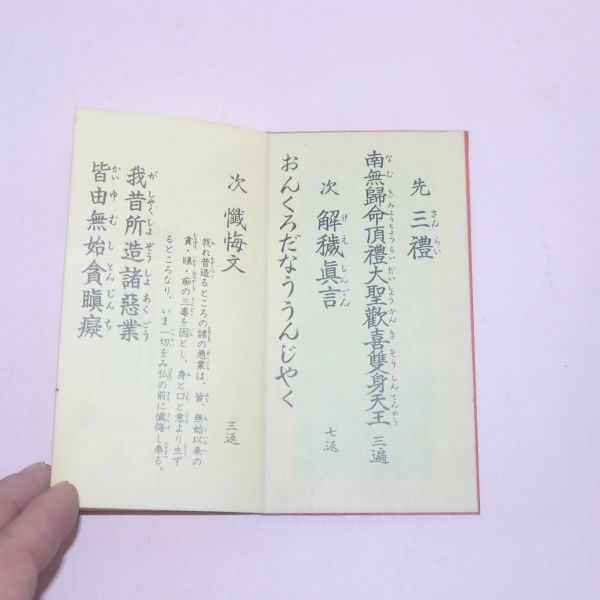 先 三禮
南無歸命頂禮大聖歡喜雙身天王 三遍
次 解穢眞言
おんくろだなううんじやく 七返
次 懺悔文 三返
我れ昔造るところの諸の悪業は、皆、無始以來の
貪、瞋、痴の三毒を因とし、身と口と意より生ず
るところなり、いま一切をみ仏の前に懺悔し奉る。
我昔所造諸惡業
皆由無始貪瞋癡